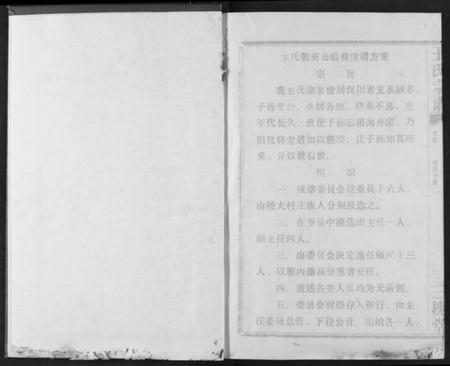 王氏朝英公后裔续谱方案
宗旨
我王氏宗亲世居汶川者支系颇多，
子孙繁衍，散居各地，联系不易，恐
年代长久，致使子孙忘祖而弃宗，乃
倡仪将老谱加以整理，让子孙知其所
来，并以教后世。
组织
一、续谱委员会设委员十六人，
由较大村庄族人分别推选之。
二、在委员中推选出主任一人，
副主任四人。
三、由委员会决定选任顾问十三
人，以族内德高望重者充任。
四、前述各类人员均为无薪制。
五、委员会财经存入银行，由主
任委员总管，下设会计、出纳各一人，
王氏宗谱
三槐堂